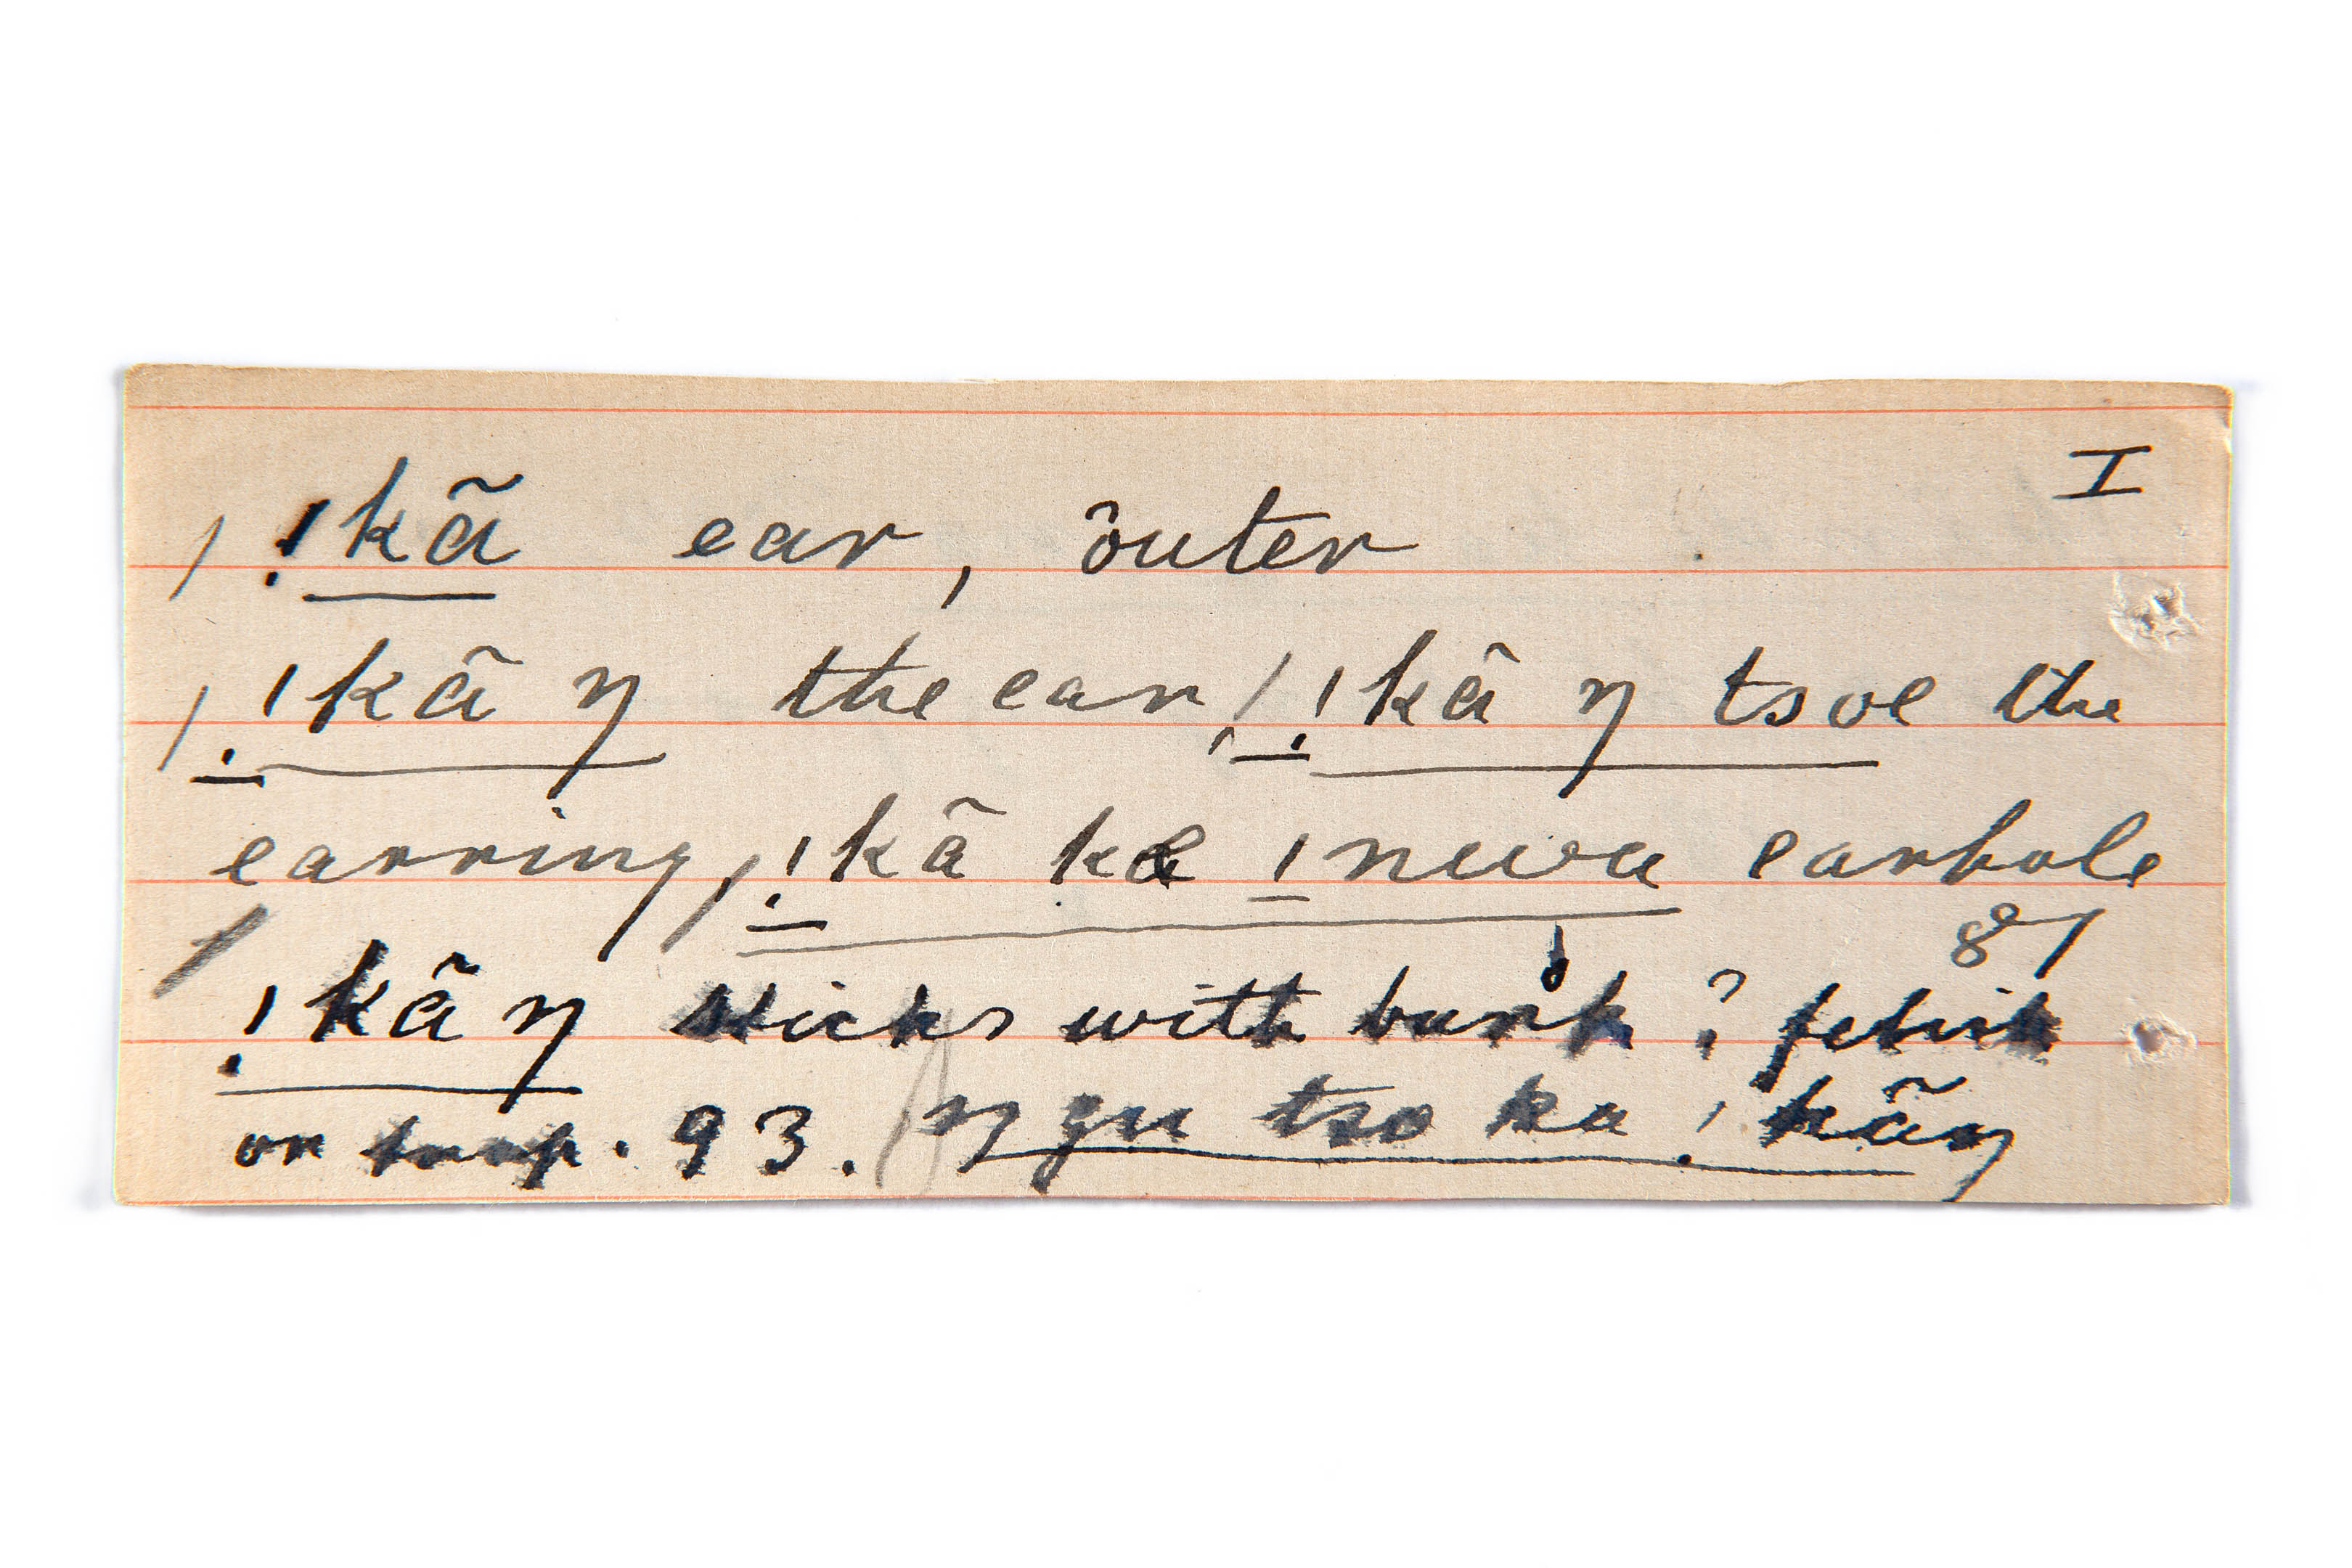 I
!kã ear, outer
!kã ŋ the ear, !kã ŋ tsoe the
earring, !kã ke ǀnuwa earhole
87
!kã ŋ sticks with bark ? fetish
on trap. 93. ŋ gu tso ka !kãŋ